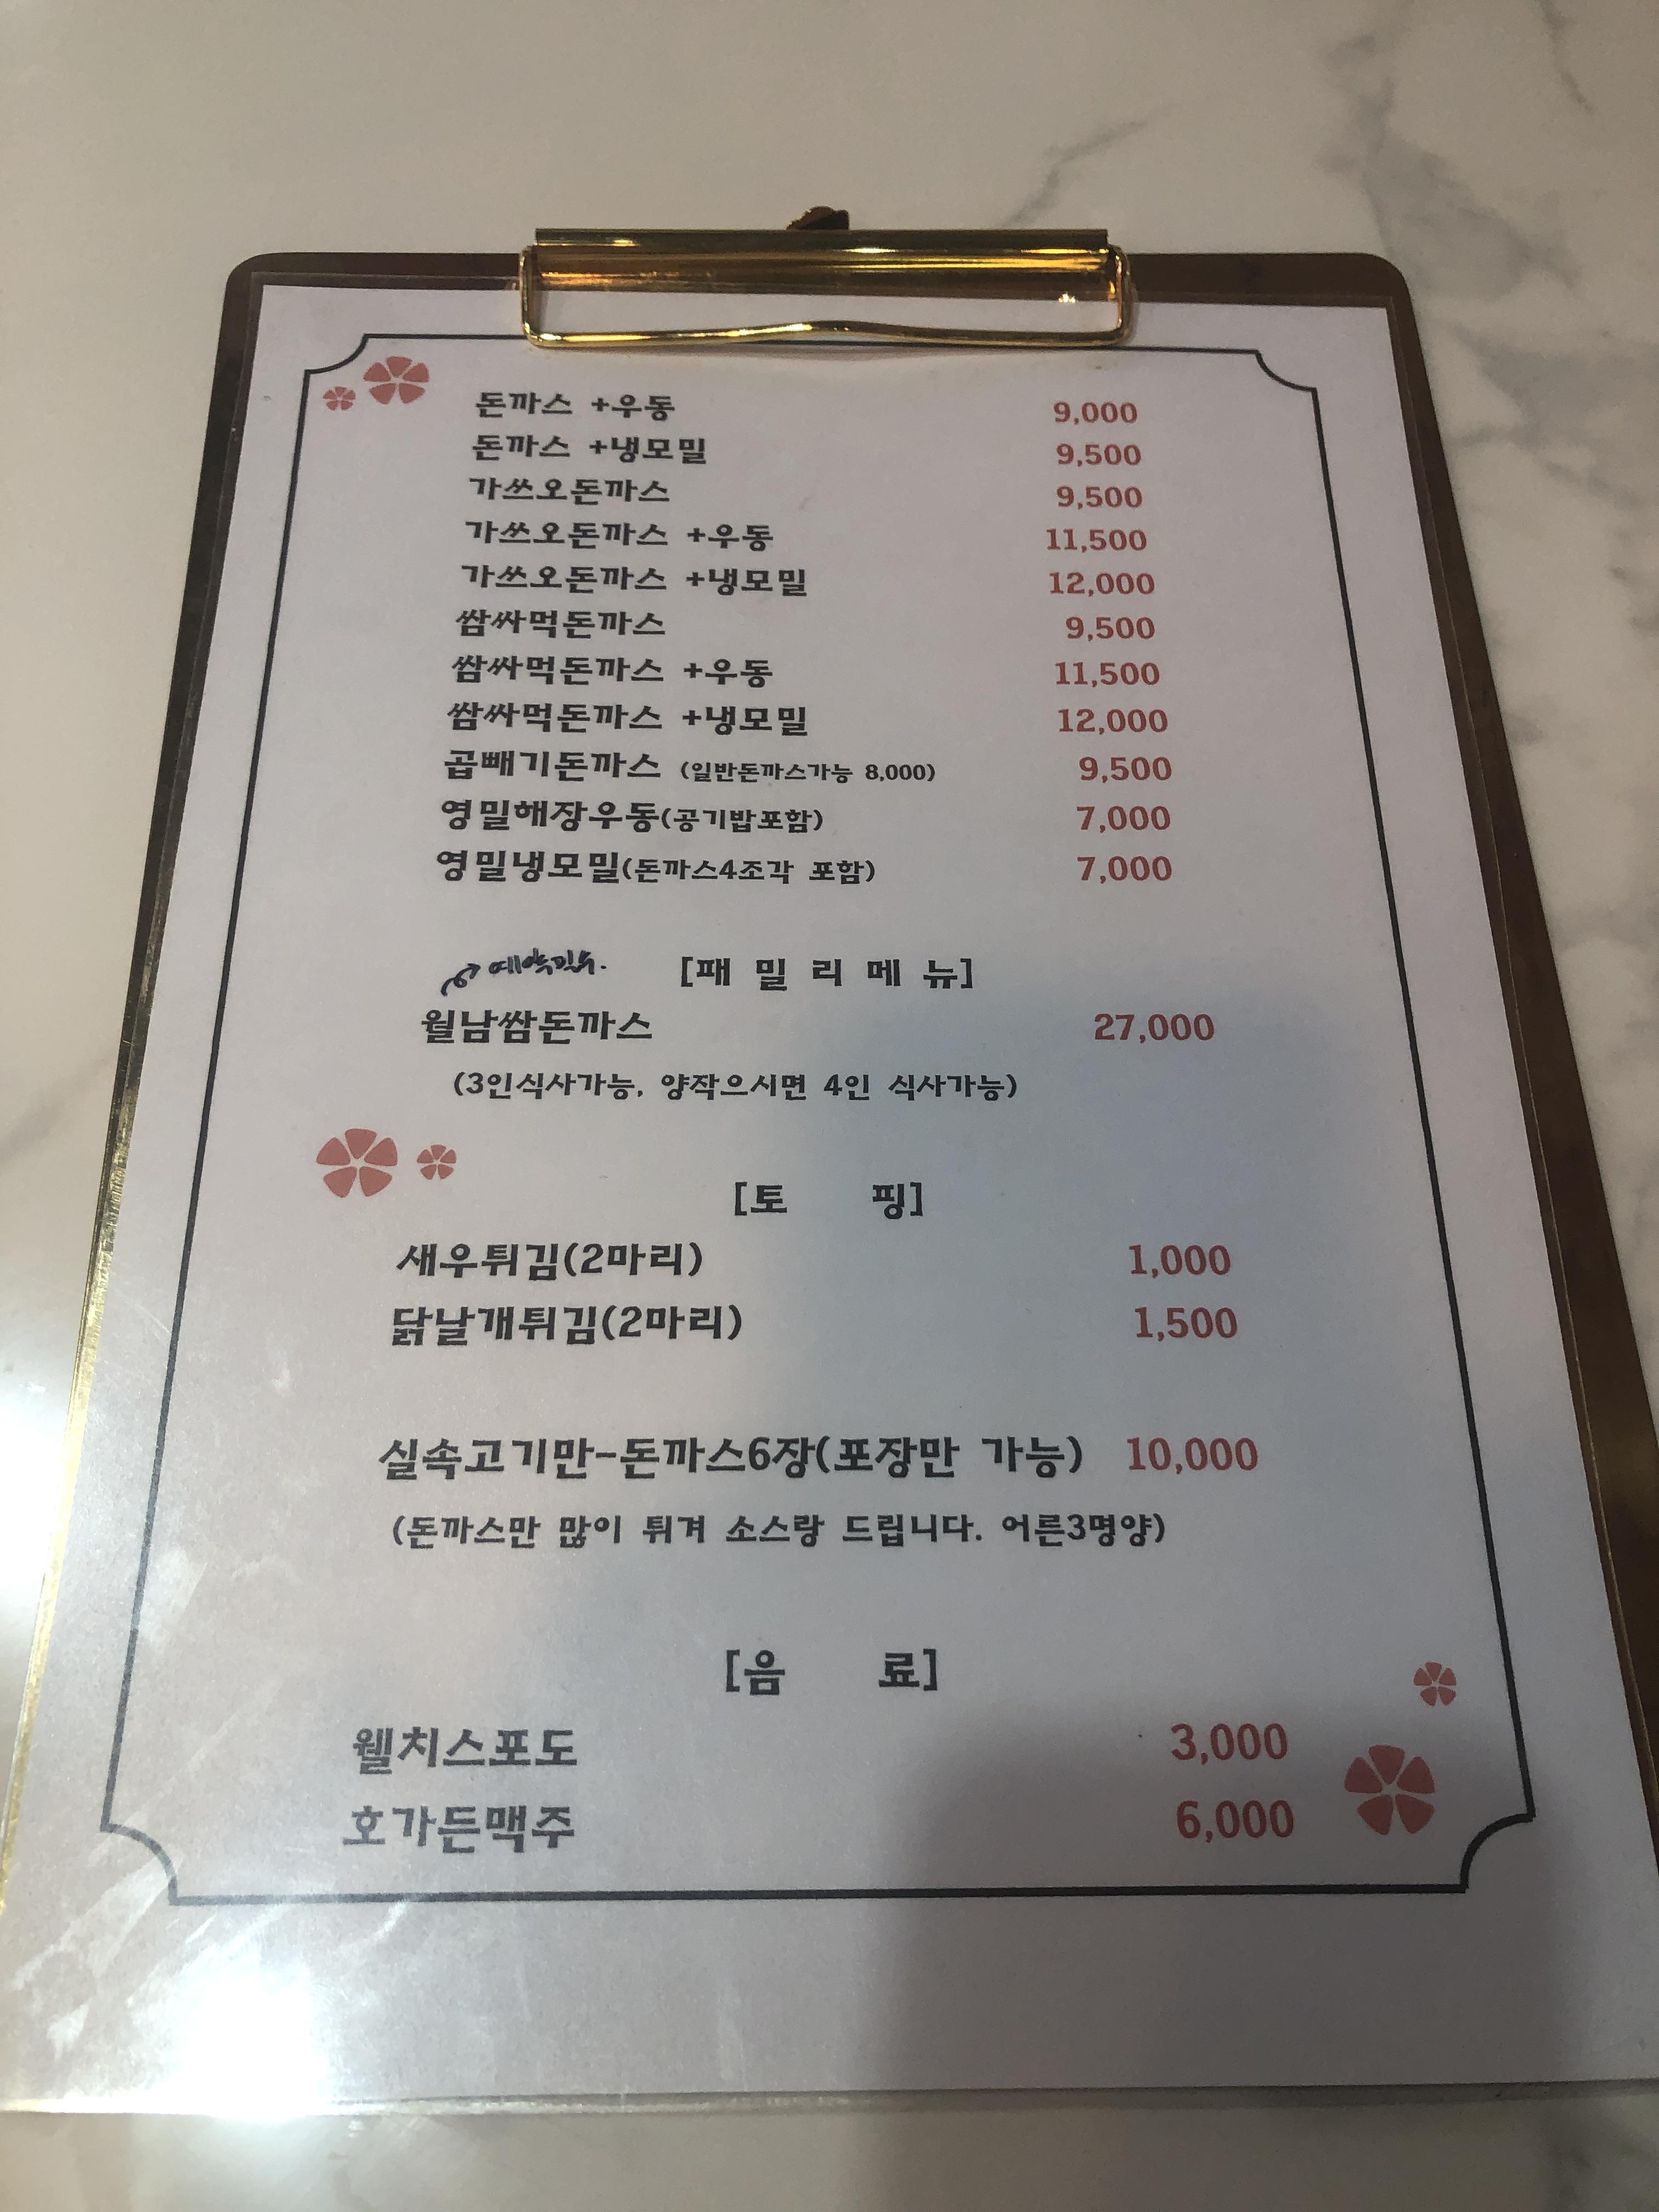 돈까스 +우동 9,000
돈까스 +냉모밀 9,500
가쓰오돈까스 9,500
가쓰오돈까스 +우동 11,500
가쓰오돈까스 +냉모밀 12,000
쌈싸먹돈까스 9,500
쌈싸먹돈까스 +우동 11,500
쌈싸먹돈까스 +냉모밀 12,000
곱빼기돈까스 (일반돈까스가능 8,000) 9,500
영밀해장우동(공기밥포함) 7,000
영밀냉모밀(돈까스4조각 포함) 7,000
예약필수. [패 밀 리 메 뉴]
월남쌈돈까스 27,000
(3인식사가능, 양작으시면 4인 식사가능)
[토 핑]
새우튀김(2마리) 1,000
닭날개튀김(2마리) 1,500
실속고기만-돈까스6장(포장만 가능) 10,000
(돈까스만 많이 튀겨 소스랑 드립니다. 어른3명양)
[음 료]
웰치스포도 3,000
호가든맥주 6,000